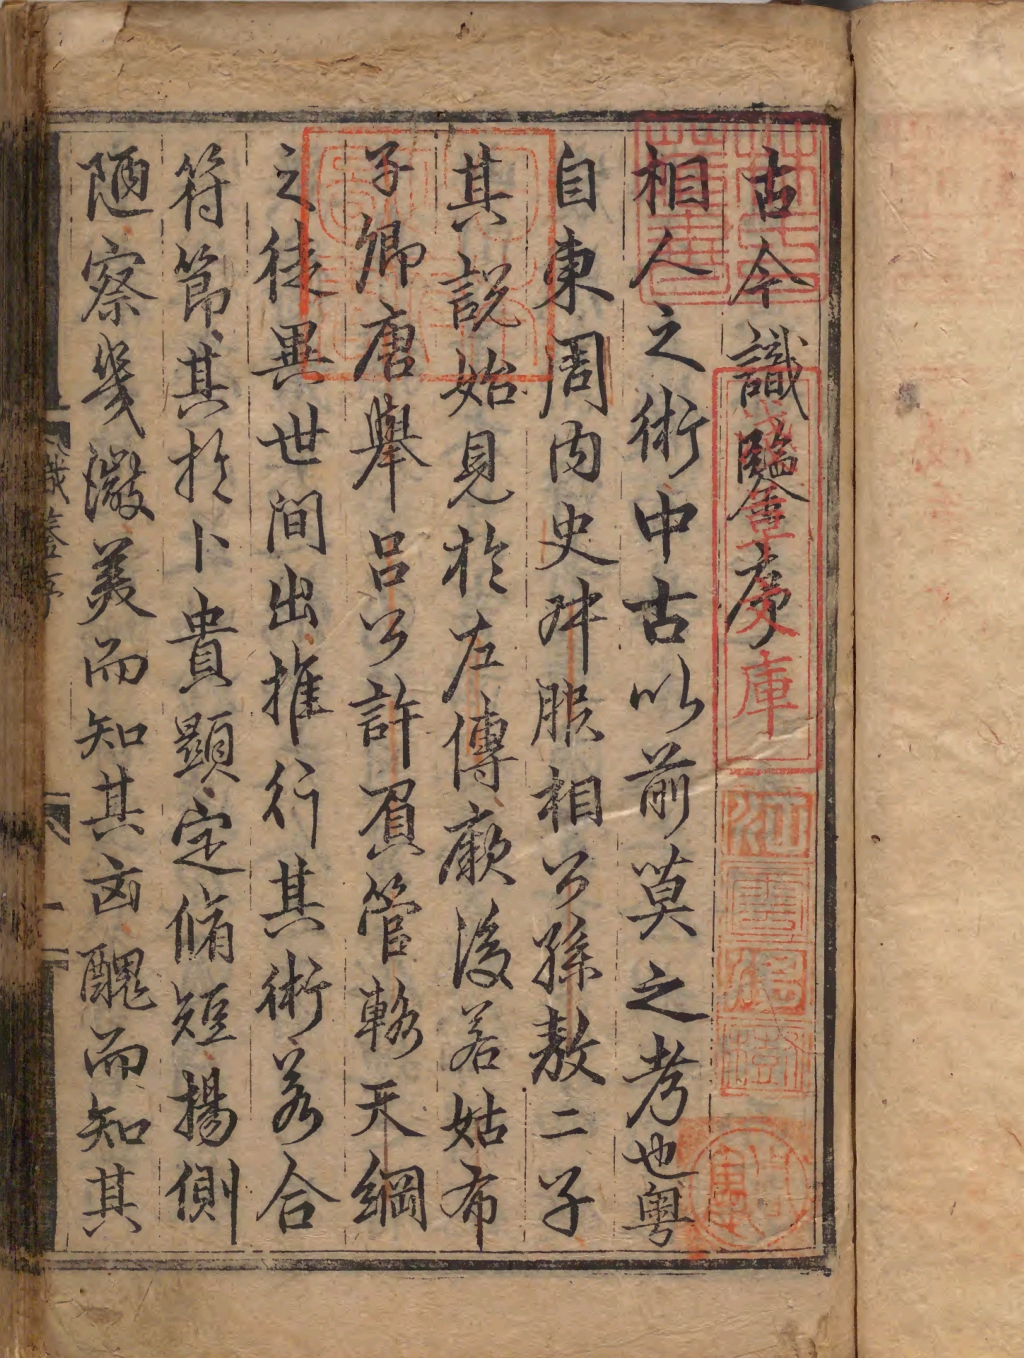 古今識鑒序
相人之術中古以前莫之考也粤
自東周内史叔服相公孫敖二子
其説始見於左傳厥後若姑布
子卿唐舉吕公許負管輅天綱
之徒異世間出推行其術若合
符節其於卜貴顯定脩短揚側
陋察幾微美而知其凶醜而知其
庫